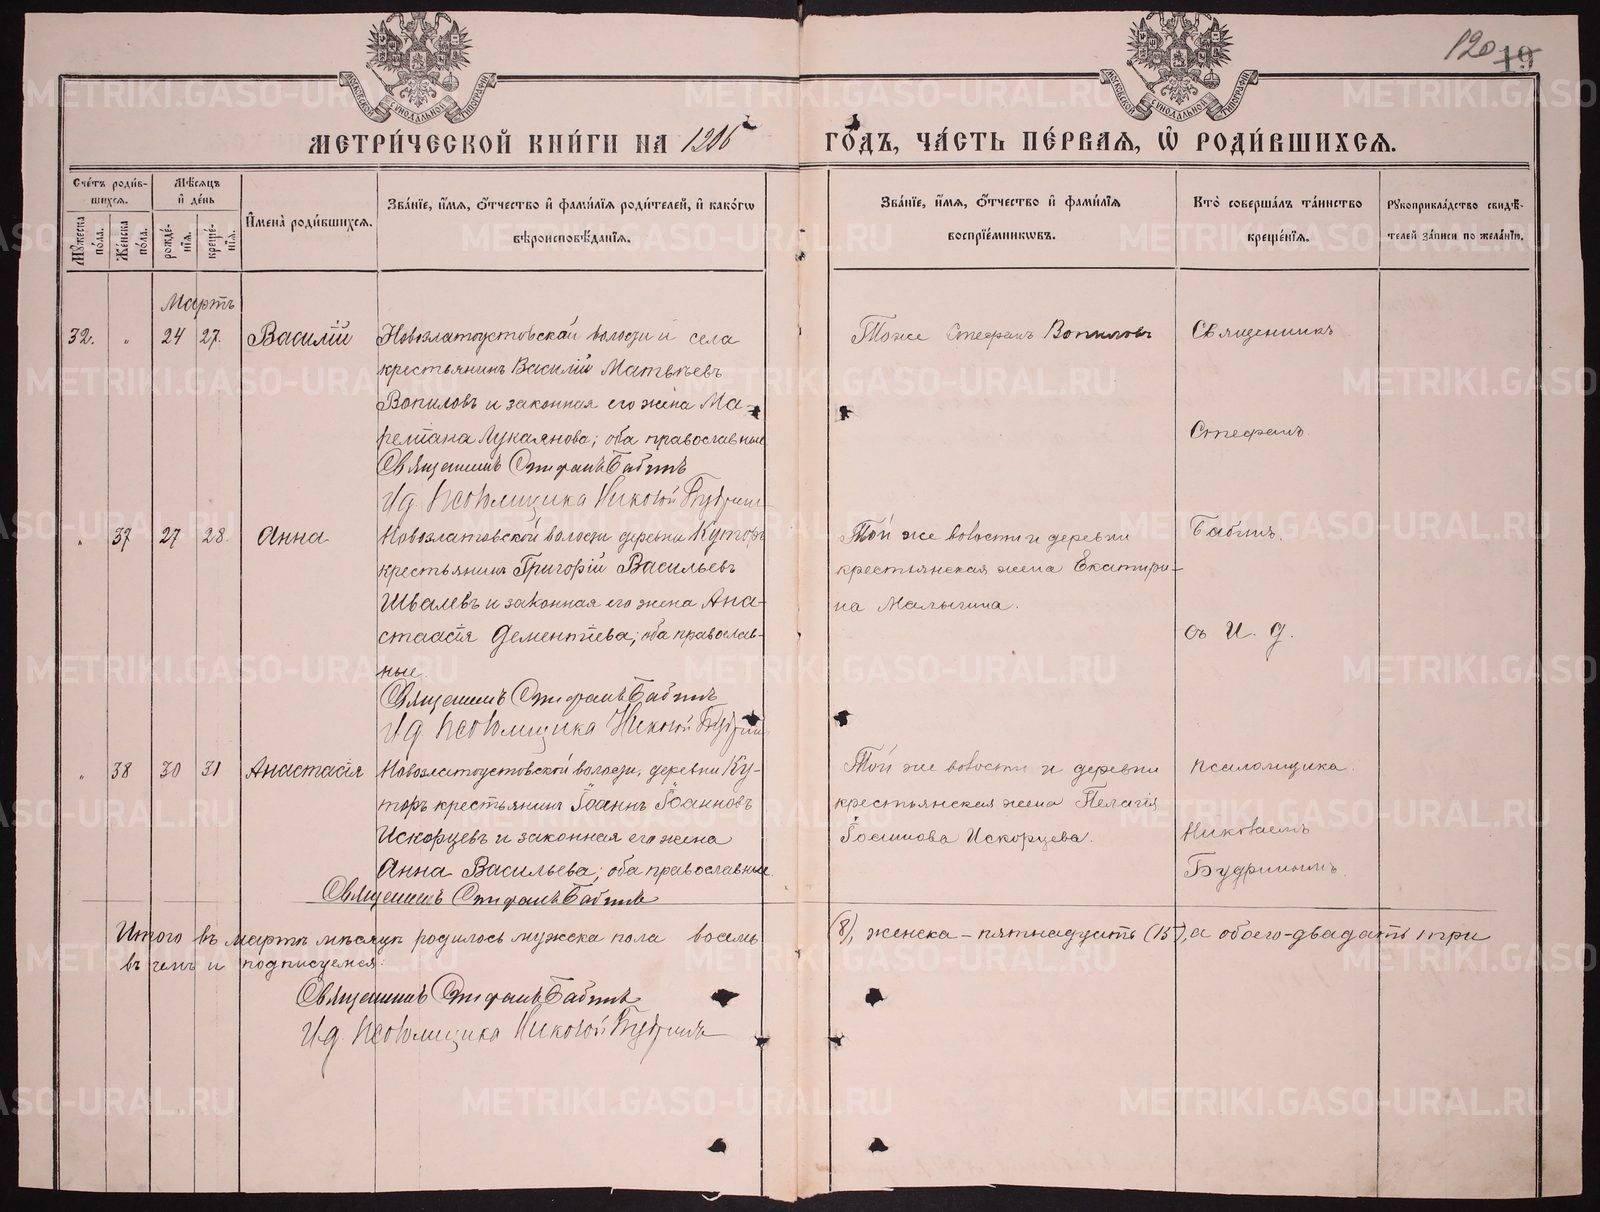 120 19
МЕТРИ́ЧЕСКОЙ КНИ́ГИ НА 1906
ГО́ДЪ, ЧА́СТЬ ПЕ́РВАЯ, Ѽ РОДИ́ВШИХСЯ.
Сче́тъ роди́в-
шихся.
Му́жеска по́ла.
Же́нска по́ла.
Мѣ́сяцъ и де́нь
рожде́-нїя.
креще́-нїя.
И҆мена̀ роди́вшихся.
Зва́нїе, и҆́мя, ѻ҆́тчество и҆ фами́лїя роди́телей, и҆ како́гѡ
вѣроисповѣ́данїя.
Зва́нїе, и҆́мя, ѻ҆́тчество и҆ фами́лїя
воспрїе́мникѡвъ.
Кто̀ соверша́лъ та́инство
креще́нїя.
Рꙋкоприкла́дство свидѣ́-
телей за́писи по жела́нїю.
Мартъ
32. " 24 27. Василій
Новозлатоустовской волости и села
крестьянинъ Василій Матвѣевъ
Вопиловъ и законная его жена Ма-
реміана Лукаянова; оба православные
Священникъ Стефанъ Бабинъ
И.д. псаломщика Николай Будринъ
Тоже Стефанъ Вопиловъ
Священникъ
Стефанъ
" 37 27 28. Анна
Новозлатовской волости деревни Куторъ
крестьянинъ Григорій Васильевъ
Швалевъ и законная его жена Ана-
стаасія Дементіева; оба православ-
ные.
Священникъ Стефанъ Бабинъ
И.д. псаломщика Николай Будринъ
Той же волости и деревни
крестьянская жена Екатири-
на Малыгина.
Бабинъ
съ И. д.
" 38 30 31 Анастасія
Новозлатоустовской волости, деревни Ку-
торъ крестьянинъ Іоаннъ Іоанновъ
Искорцевъ и законная его жена
Анна Васильева; оба православные.
Священникъ Стефанъ Бабинъ
Той же волости и деревни
крестьянская жена Пелагія
Іоаннова Искорцева.
псаломщика
Николаемъ
Будринымъ.
Итого въ мартѣ мѣсяцѣ родилось мужска пола восемь (8), женска - пятнадцать (15), а обоего - двадцать три
въ чемъ и подписуемся:
Священникъ Стефанъ Бабинъ
И.д. псаломщика Николай Будринъ
METRIKI.GASO-URAL.RU